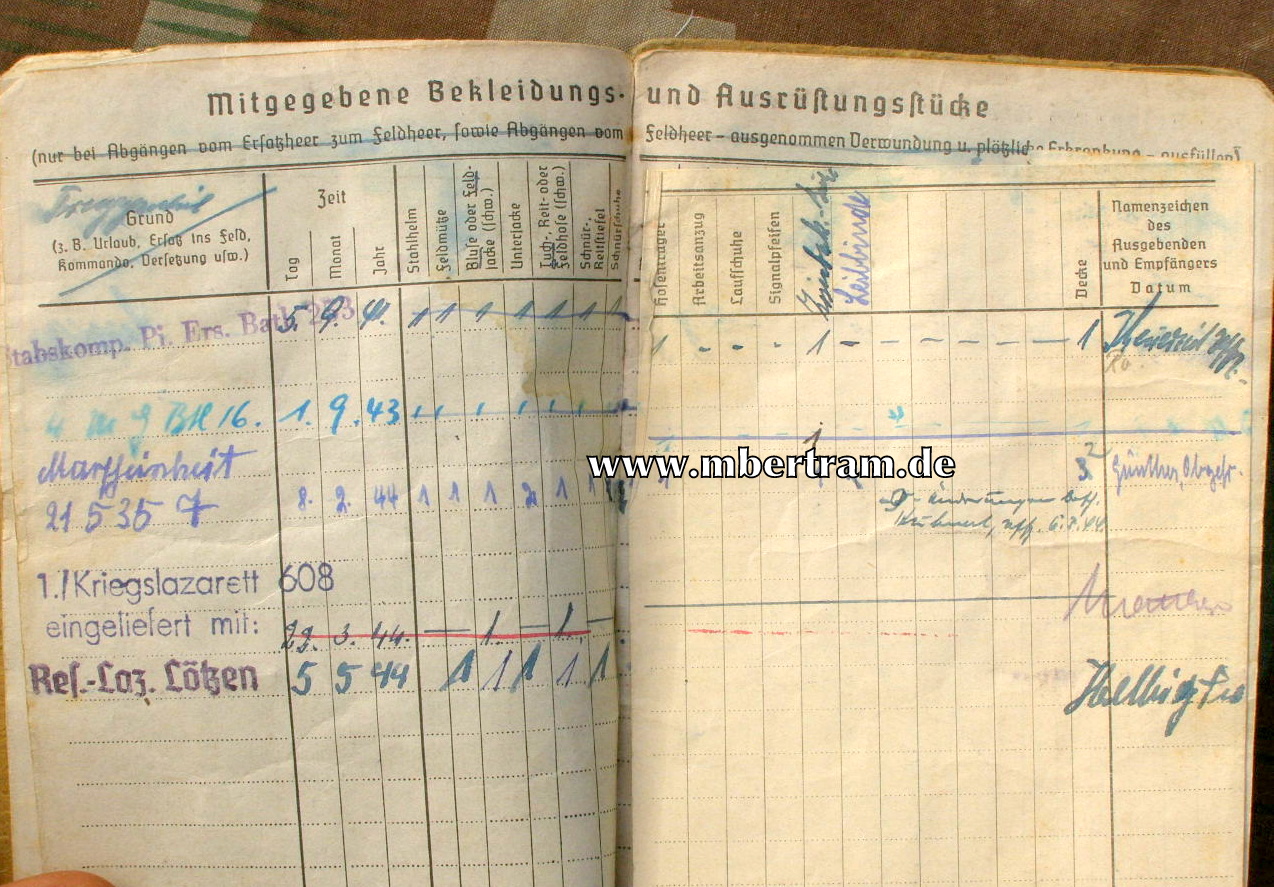 Mitgegebene Bekleidungs- und Ausrüstungsstücke
(nur bei Abgängen vom Ersatzheer zum Feldheer, sowie Abgängen vom Feldheer – ausgenommen Verwundung u. plötzliche Erkrankung – ausfüllen)
Grund
(z. B. Urlaub, Ersatz ins Feld,
Kommando, Versetzung usw.)
Zeit
Tag
Monat
Jahr
Stahlhelm
Feldmütze
Bluse oder Feld-
jacke (schw.)
Unterjacke
Tuch-, Reit- oder
Feldhose (schw.)
Schnür-,
Reitstiefel
Schnürschuhe
Hosenträger
Arbeitsanzug
Laufschuhe
Signalpfeifen
Leibbinde
Decke
Namenzeichen
des
Ausgebenden
und Empfängers
Datum
Stabskomp. Pi. Ers. Batl. 213
5. 9. 41. 1 1 1 1 1 1 1 1 - - - 1 - - - - - - 1
Btl 16. 1. 9. 43
Marscheinheit
21 535 8. 2. 44 1 1 1 2 1 1 Günther, Obgefr.
6.3.44.
1./Kriegslazarett 608
eingeliefert mit: 22. 3. 44. — 1 — 1 —
Res.-Laz. Lötzen 5 5 44 1 1 1 1 1
www.mbertram.de